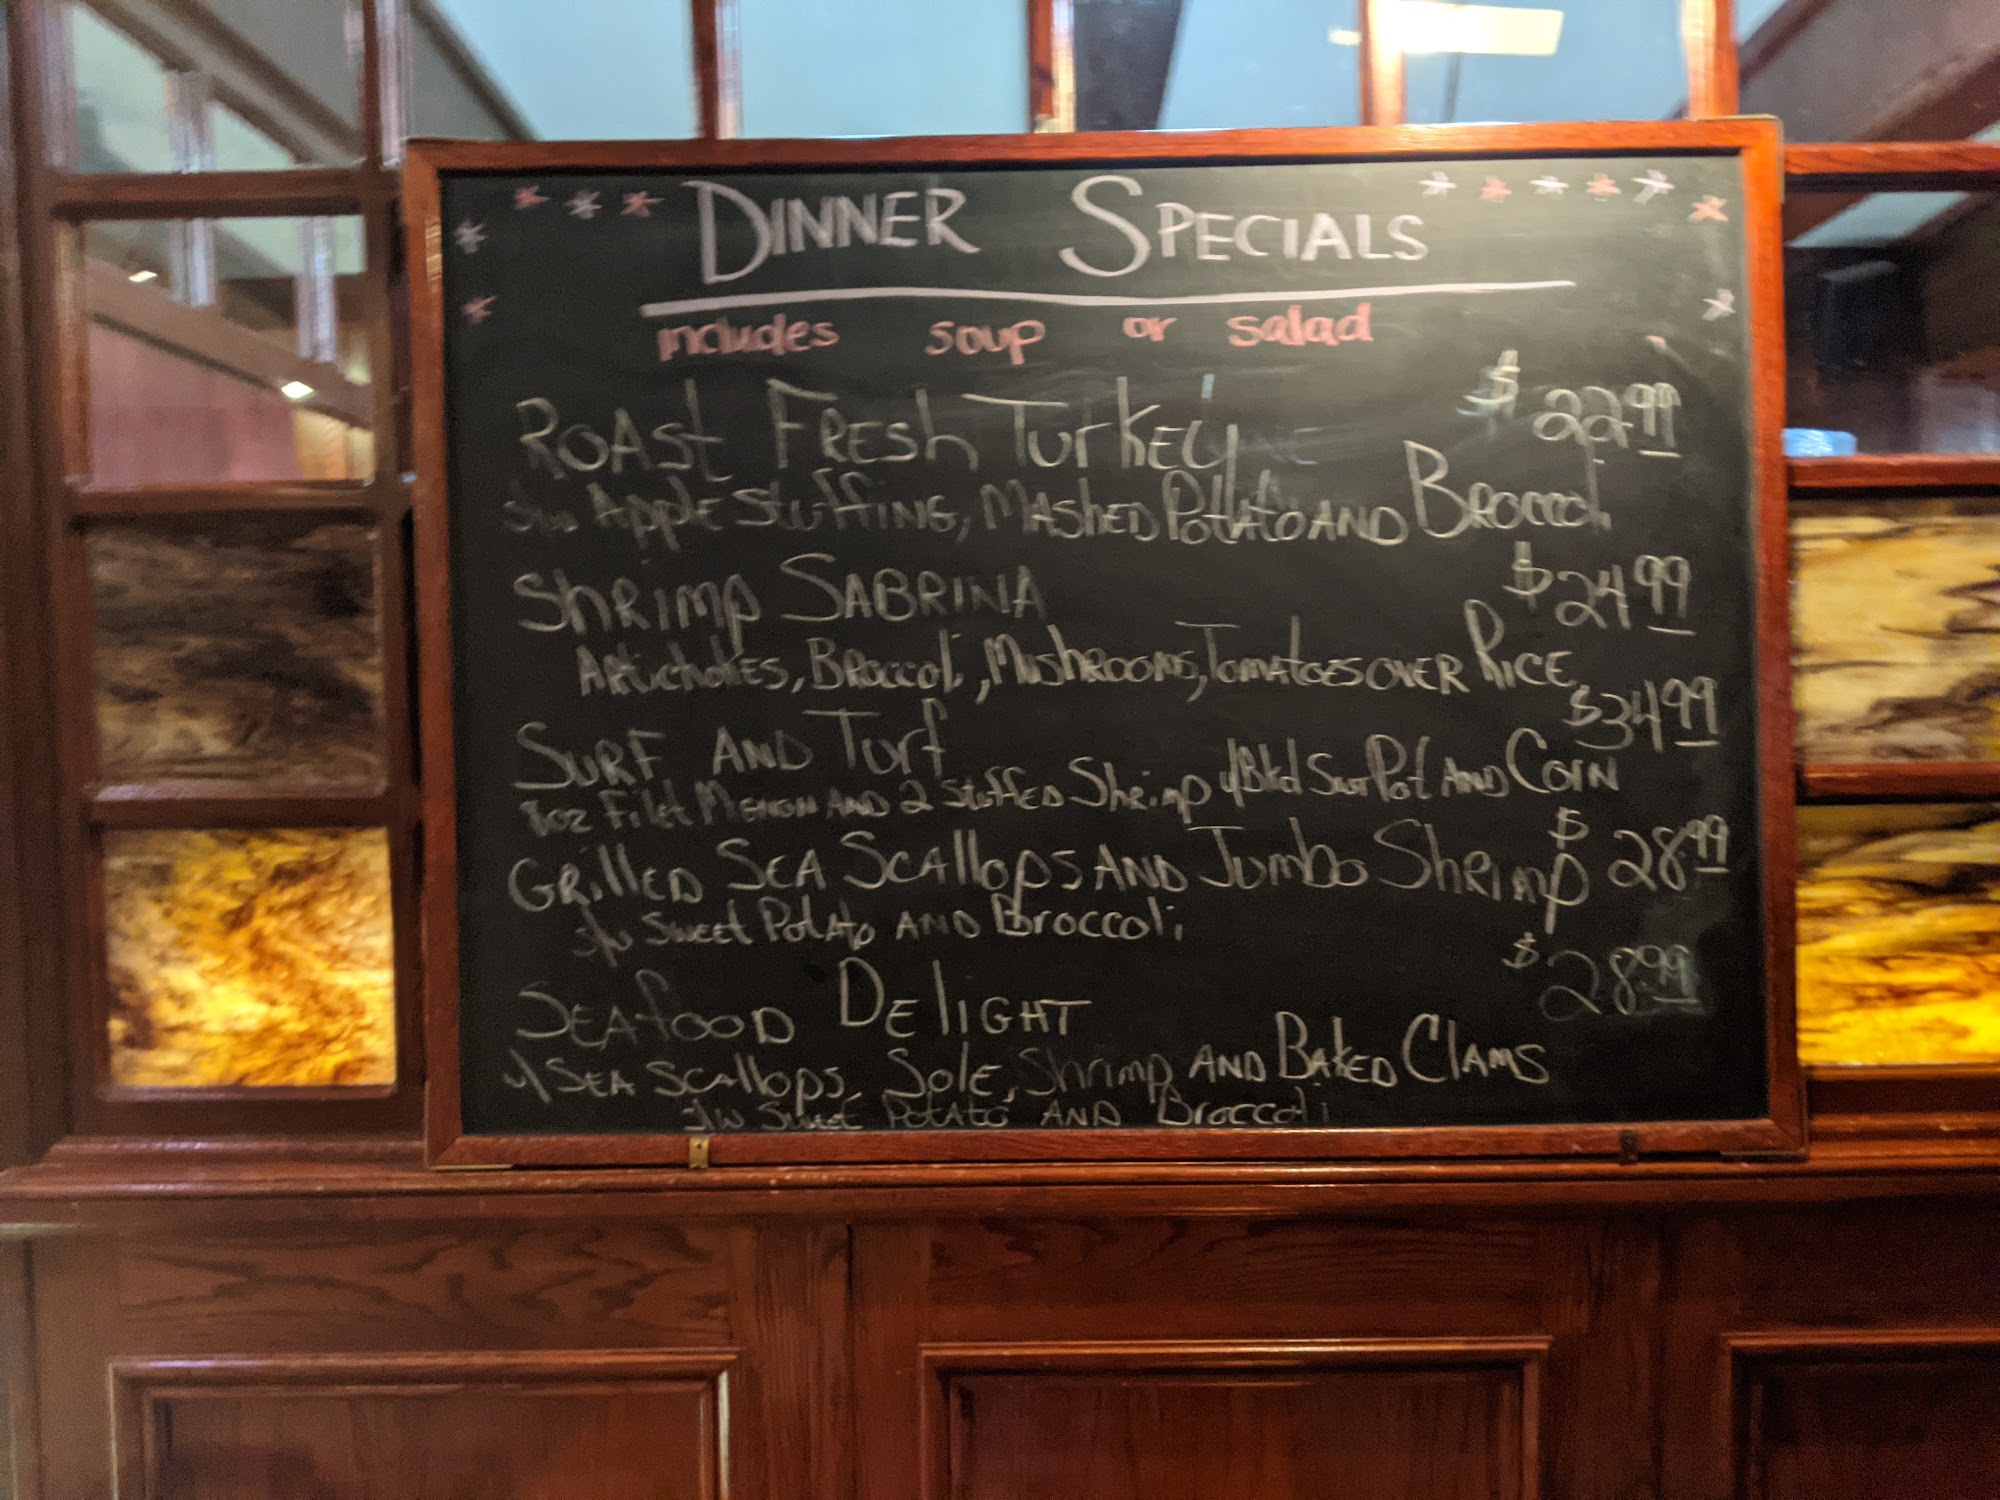 DINNER SPECIALS
includes soup or salad
ROAST FRESH TURKEY $22.99
s/w Apple Stuffing, MASHED Potato AND BROCCOLI
Shrimp SABRINA $24.99
Artichokes, Broccoli, Mushrooms, Tomatoes over Rice
SURF AND Turf $34.99
oz Filet Mignon AND 2 Stuffed Shrimp w/ Bkd Swt Pot AND Corn
Grilled SEA Scallops AND Jumbo Shrimp $28.99
s/w Sweet Potato AND Broccoli
SEAfood Delight $28.99
w/ SEA Scallops, Sole, Shrimp AND BAKED Clams
s/w Sweet Potato AND Broccoli